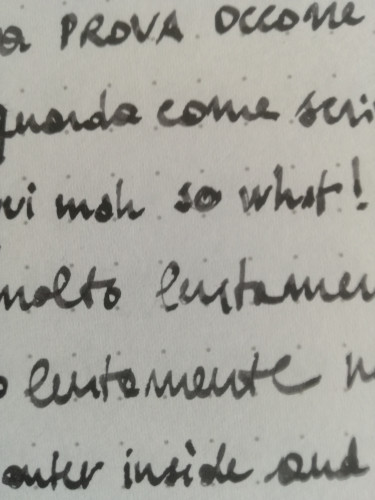 PROVA occorre
guarda come scri
ui mah so what!
molto lentamen
lentamente
outer inside and